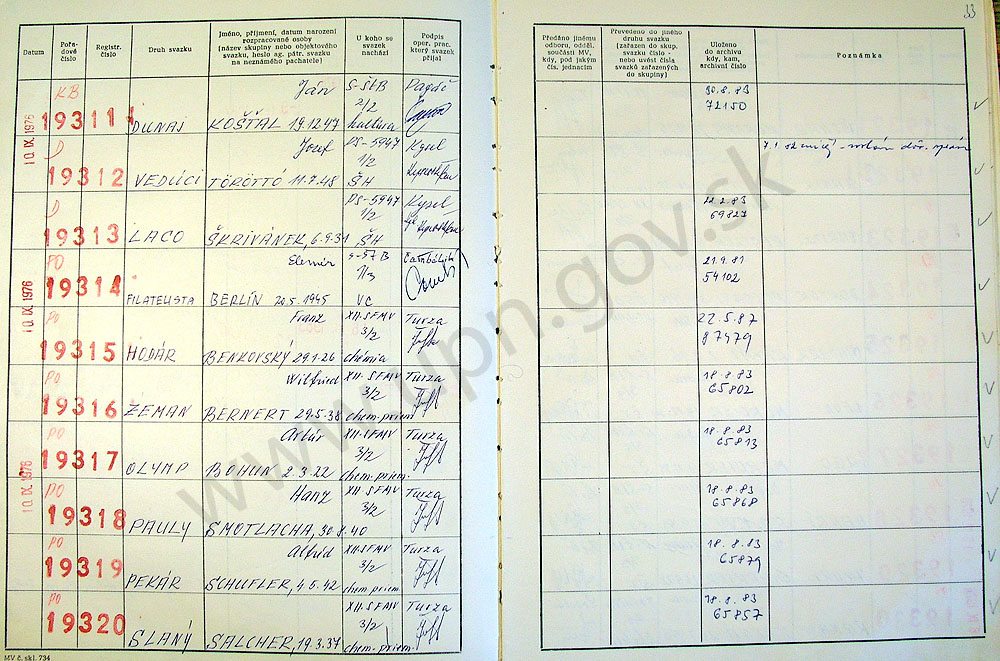 33
Datum
Pořadové číslo
Registr. číslo
Druh svazku
Jméno, příjmení, datum narození rozpracované osoby (název skupiny nebo objektového svazku, heslo ag. pátr. svazku na neznámého pachatele)
U koho se svazek nachází
Podpis oper. prac. který svazek přijal
Předáno jinému odboru, odděl. součásti MV, kdy, pod jakým čís. jednacím
Převedeno do jiného druhu svazku (zařazen do skup. svazku číslo - nebo uvést čísla svazků zařazených do skupiny)
Uloženo do archivu kdy, kam, archivní číslo
Poznámka
10. IX. 1976
KB
19311
DUNAJ
Ján
KOŠŤAL 19.12.47
S-ŠtB
2/2
kultúra
30.8.83
72150
D
19312
VEDÚCI
Jozef
TÖRÖTTÓ 11.7.48
PS-5947
1/2
ŠH
Kysel
D
19313
LACO
ŠKRIVÁNEK, 6.9.31
PS-5947
1/2
ŠH
Kysel
21.2.83
69827
10. IX. 1976
PO
19314
FILATELISTA
Elemír
BERLÍN 20.5.1945
1/3
VC
21.9.81
54102
PO
19315
HODÁR
Franz
BENKOVSKÝ 29.1.26
XII. SFMV
3/2
chémia
Turza
22.5.87
87479
PO
19316
ZEMAN
Wilfried
BERNERT 29.5.38
XII. SFMV
3/2
chem. priem.
Turza
18.8.83
65802
10. IX. 1976
PO
19317
OLYMP
Artúr
BOHUN 2.3.22
XII. SFMV
3/2
chem. priem.
Turza
18.8.83
65813
PO
19318
PAULY
Hanz
SMOTLACHA, 30.8.40
XII. SFMV
3/2
Turza
18.8.83
65868
PO
19319
PEKÁR
Alfréd
SCHUFLER, 4.5.42
XII. SFMV
3/2
chem. priem.
Turza
18.8.83
65879
PO
19320
SLANÝ
SALCHER, 19.3.37
XII. SFMV
3/2
chem. priem.
Turza
18.8.83
65857
MV č. skl. 734
www.upn.gov.sk